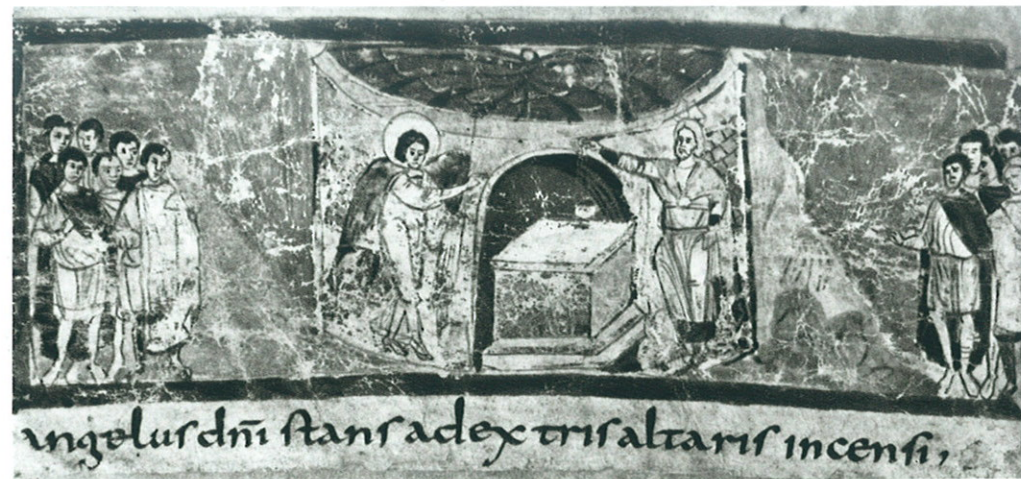 angelus dñi stans a dextris altaris incensi,